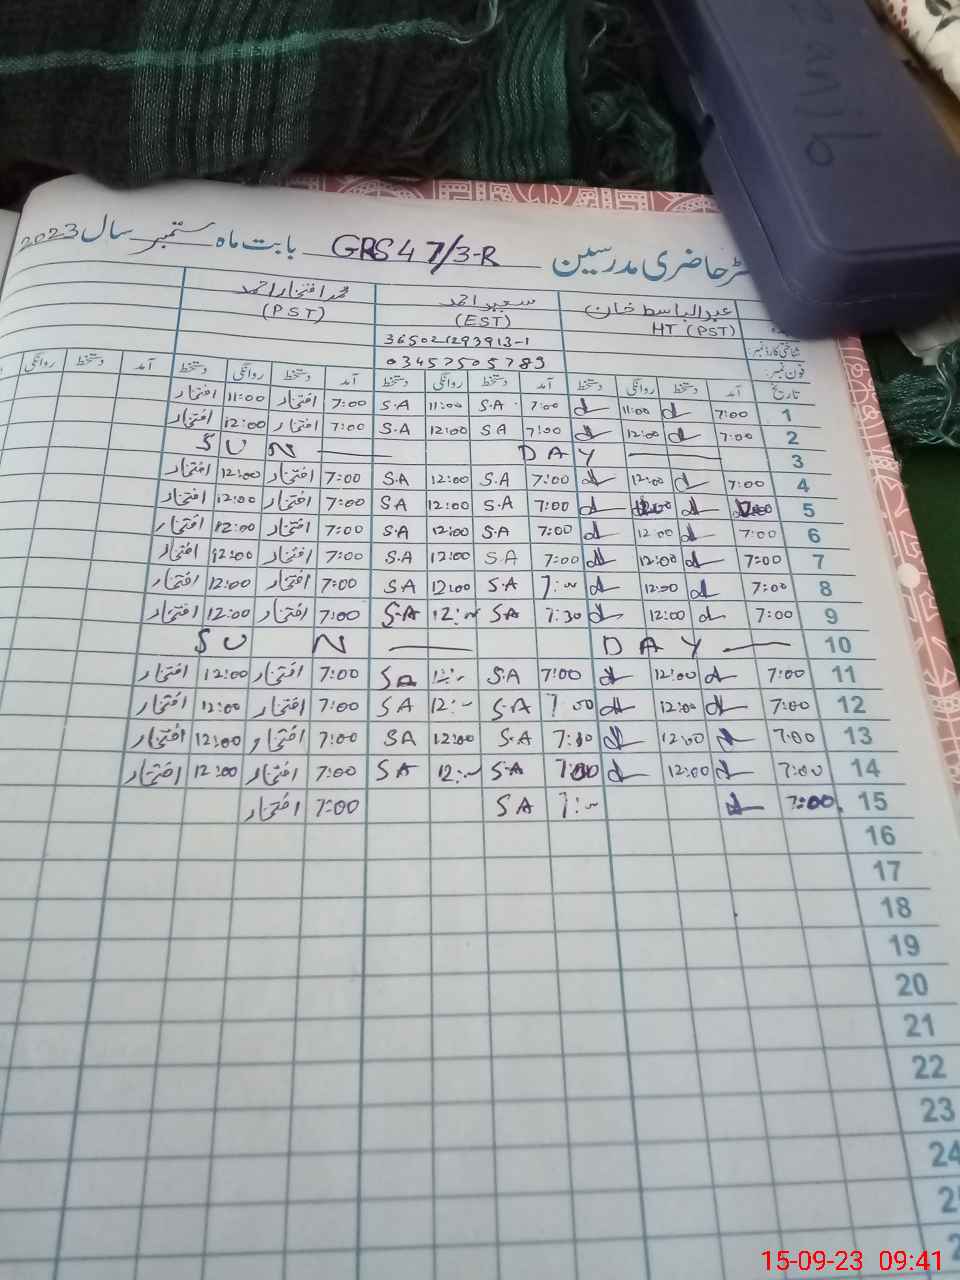 zanib
ٹر حاضری مدرسین GRS 47/3-R بابت ماہ ستمبر سال 2023
عبدالباسط خان سعید احمد محمد افتخار احمد
HT (PST) (EST) (PST)
شناختی کارڈ نمبر: 365021293913-1
فون نمبر: 03457505789
تاریخ آمد دستخط روانگی دستخط آمد دستخط روانگی دستخط آمد دستخط روانگی دستخط آمد دستخط روانگی
1 7:00 11:00 7:00 S.A 11:00 S.A 7:00 افتخار 11:00 افتخار
2 7:00 12:00 7:00 S A 12:00 S.A 7:00 افتخار 12:00 افتخار
3 SUN — DAY —
4 7:00 12:00 7:00 S.A 12:00 S.A 7:00 افتخار 12:00 افتخار
5 7:00 12:00 7:00 S.A 12:00 S A 7:00 افتخار 12:00 افتخار
6 7:00 12:00 7:00 S.A 12:00 S.A 7:00 افتخار 12:00 افتخار
7 7:00 12:00 7:00 S.A 12:00 S.A 7:00 افتخار 12:00 افتخار
8 7:00 12:00 7:— S.A 12:00 S A 7:00 افتخار 12:00 افتخار
9 7:00 12:00 7:30 S A 12:— S.A 7:00 افتخار 12:00 افتخار
10 SUN — DAY —
11 7:00 12:00 7:00 S.A 12:— S A 7:00 افتخار 12:00 افتخار
12 7:00 12:00 7:00 S.A 12:— S A 7:00 افتخار 12:00 افتخار
13 7:00 12:00 S.A 12:00 S A 7:00 افتخار 12:00 افتخار
14 7:00 12:00 7:00 S.A 12:— S A 7:00 افتخار 12:00 افتخار
15 7:00 7:— S A 7:00 افتخار
16
17
18
19
20
21
22
23
24
15-09-23 09:41